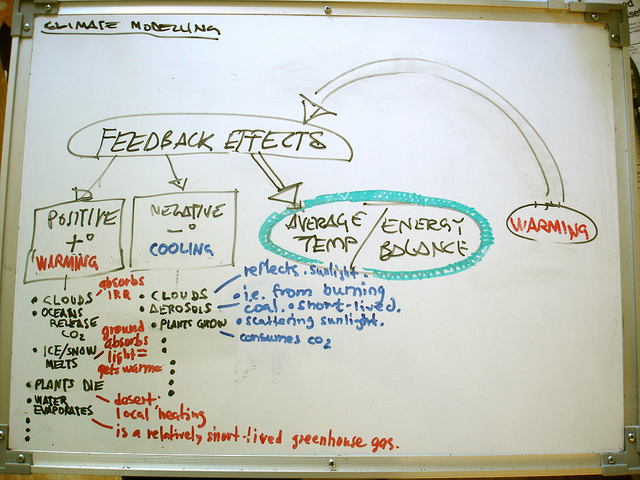 CLIMATE MODELLING
FEEDBACK EFFECTS
POSITIVE
+°
WARMING
NEGATIVE
-°
COOLING
AVERAGE
TEMP
/
ENERGY
BALANCE
WARMING
• CLOUDS
absorbs
IRR
• OCEANS
RELEASE
CO2
ground
absorbs
light =
gets warme
• ICE/SNOW
MELTS
• PLANTS DIE
desert.
local heating
• WATER
EVAPORATES
is a relatively short-lived greenhouse gas.
• CLOUDS
reflects sunlight.
• AEROSOLS
• i.e. from burning
coal. • short-lived.
• scattering sunlight.
• PLANTS GROW
consumes CO2